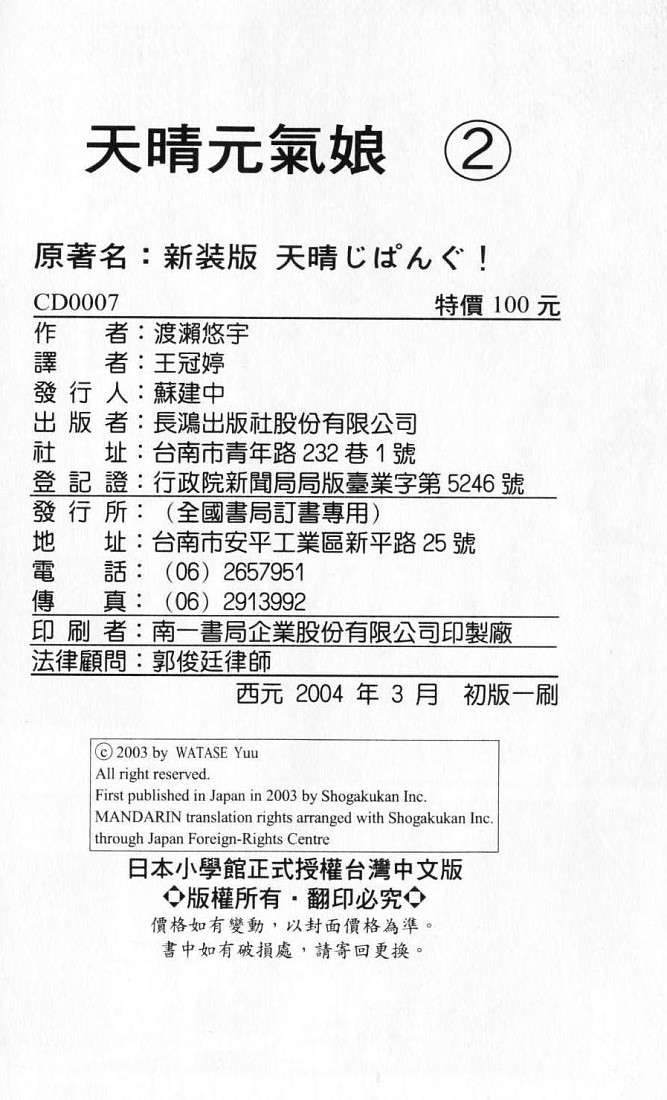 天晴元氣娘 ②
原著名：新装版 天晴じぱんぐ！
CD0007 特價 100 元
作者：渡瀨悠宇
譯者：王冠婷
發行人：蘇建中
出版者：長鴻出版社股份有限公司
社址：台南市青年路 232 巷 1 號
登記證：行政院新聞局局版臺業字第 5246 號
發行所：（全國書局訂書專用）
地址：台南市安平工業區新平路 25 號
電話：（06）2657951
傳真：（06）2913992
印刷者：南一書局企業股份有限公司印製廠
法律顧問：郭俊廷律師
西元 2004 年 3 月 初版一刷
ⓒ 2003 by WATASE Yuu
All right reserved.
First published in Japan in 2003 by Shogakukan Inc.
MANDARIN translation rights arranged with Shogakukan Inc.
through Japan Foreign-Rights Centre
日本小學館正式授權台灣中文版
◇版權所有．翻印必究◇
價格如有變動，以封面價格為準。
書中如有破損處，請寄回更換。